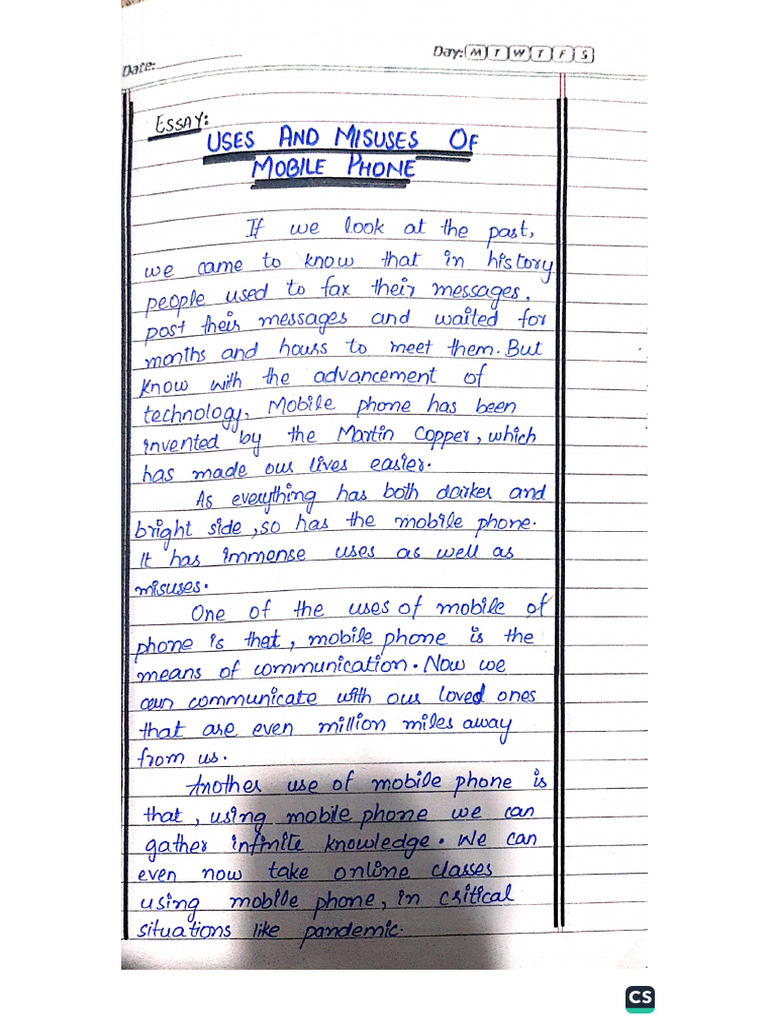 Date:
Day: M T W T F S
ESSAY:
USES AND MISUSES OF
MOBILE PHONE
If we look at the past,
we came to know that in history
people used to fax their messages,
post their messages and waited for
months and hours to meet them. But
know with the advancement of
technology, Mobile phone has been
invented by the Martin Copper, which
has made our lives easier.
As everything has both darker and
bright side, so has the mobile phone.
It has immense uses as well as
misuses.
One of the uses of mobile of
phone is that, mobile phone is the
means of communication. Now we
can communicate with our loved ones
that are even million miles away
from us.
Another use of mobile phone is
that, using mobile phone we can
gather infinite knowledge. We can
even now take online classes
using mobile phone, in critical
situations like pandemic.
CS